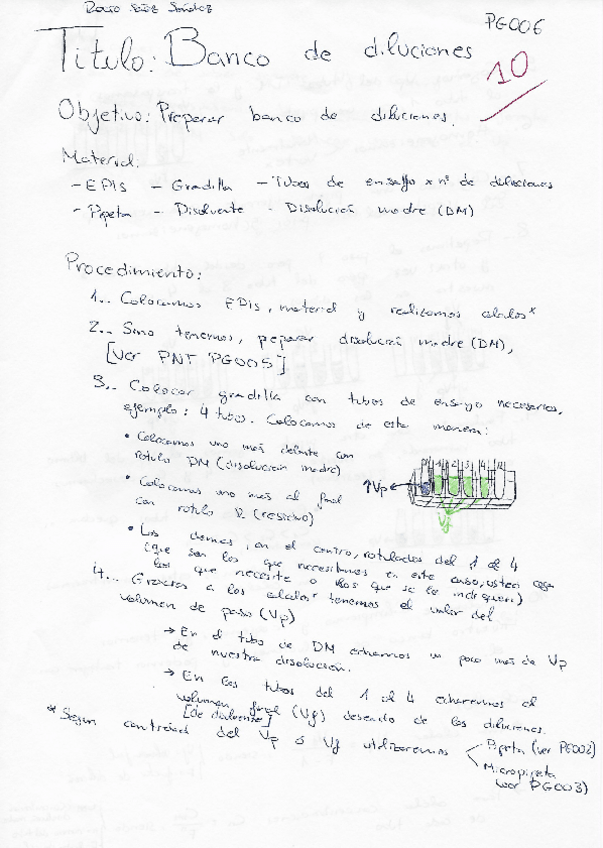 PG006
Titulo: Banco de diluciones
10
Objetivo: Preparar banco de diluciones.
Material:
- EPIS - Gradilla - Tubos de ensayo x nº de diluciones
- Pipeta - Disolvente - Disolución madre (DM)
Procedimiento:
1.. Colocamos EPIs, material y realizamos
2.. Sino tenemos, preparar disolución madre (DM),
[Ver PNT PG005]
3.. Colocar gradilla con tubos de ensayo necesarios,
ejemplo: 4 tubos. Colocamos de esta manera:
• Colocamos uno más delante con
rotulo DM (disolución madre)
• Colocamos uno más al final
con rotulo R (residuo)
↑Vp
Vf
• Los demas, en el centro, rotulados del 1 al 4
(que son los que necesitamos en este caso, usted
los que necesite o los que se le indiquen)
4... Gracias a los tenemos el valor del
volumen de paso (Vp)
→ En el tubo de DM echamos un poco más de Vp
de nuestra disolución.
→ En los tubos del 1 al 4 echaremos el
volumen final (Vf) deseado de las diluciones.
[de disolvente]
* Según cantidad del Vp o Vf utilizaremos
Pipeta (ver PG002)
Micropipeta
(ver PG003)